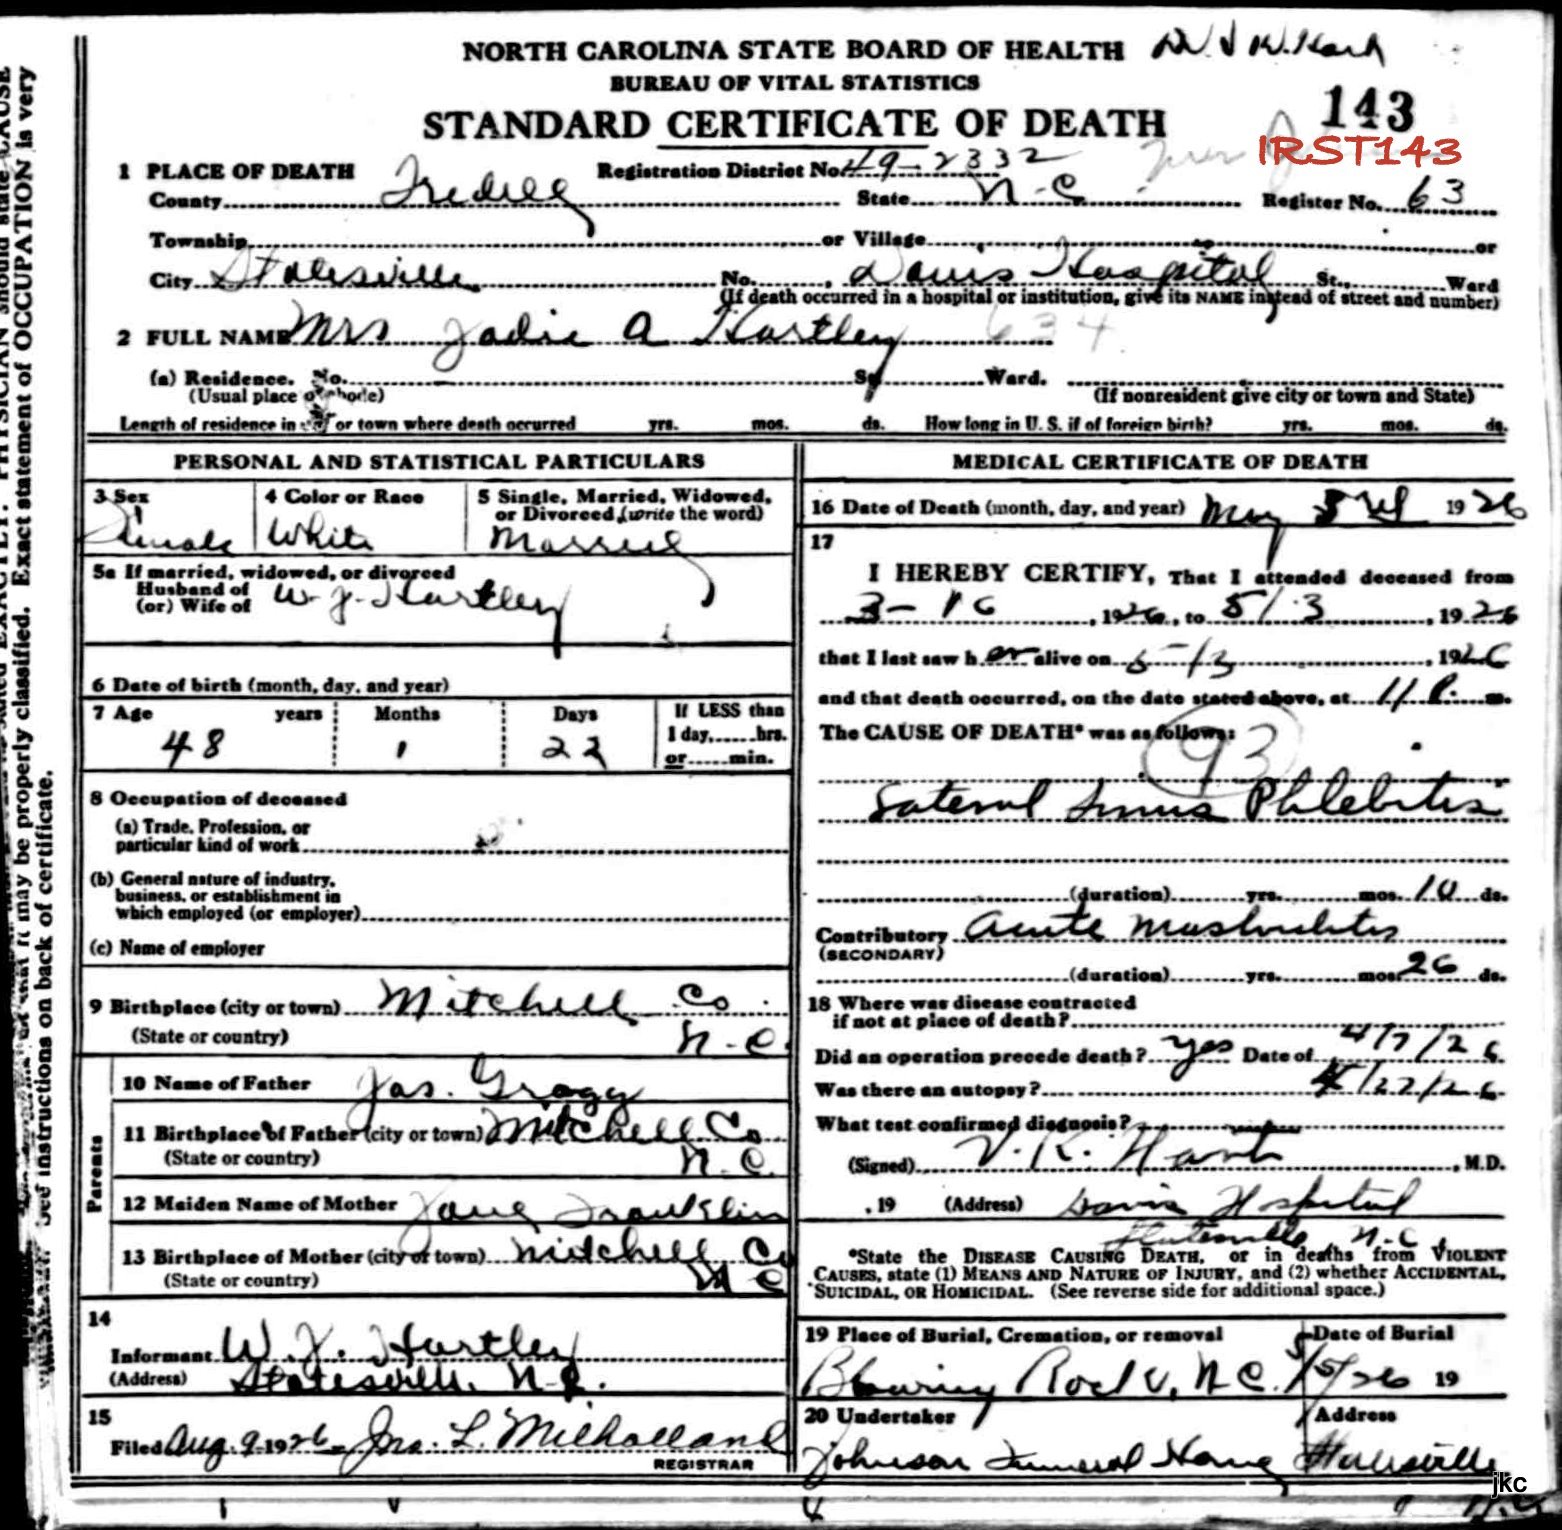 NORTH CAROLINA STATE BOARD OF HEALTH
BUREAU OF VITAL STATISTICS
STANDARD CERTIFICATE OF DEATH
143
IRST143
1 PLACE OF DEATH Registration District No. 49-2332
County Iredell State N-C Register No. 63
Township or Village or
City Statesville No. Davis Hospital St., Ward
(If death occurred in a hospital or institution, give its NAME instead of street and number)
2 FULL NAME Mrs Jadie A Hartley 634
(a) Residence. No. St. Ward.
(Usual place of abode) (If nonresident give city or town and State)
Length of residence in city or town where death occurred yrs. mos. ds. How long in U. S. if of foreign birth? yrs. mos. ds.
PERSONAL AND STATISTICAL PARTICULARS
3 Sex 4 Color or Race 5 Single, Married, Widowed,
or Divorced (write the word)
Female White Married
5a If married, widowed, or divorced
Husband of
(or) Wife of W. J. Hartley
6 Date of birth (month, day, and year)
7 Age years Months Days If LESS than
1 day, hrs.
or min.
48 1 22
8 Occupation of deceased
(a) Trade, Profession, or
particular kind of work
(b) General nature of industry,
business, or establishment in
which employed (or employer)
(c) Name of employer
9 Birthplace (city or town) Mitchell Co.
(State or country) N-C.
Parents
10 Name of Father Jas. Gragg
11 Birthplace of Father (city or town) Mitchell Co
(State or country) N.C.
12 Maiden Name of Mother Jane Franklin
13 Birthplace of Mother (city or town) Mitchell Co
(State or country) N C
14
Informant W. J. Hartley
(Address) Statesville, N-C.
15
Filed Aug. 9-1926 Jno. L. Milholland
REGISTRAR
MEDICAL CERTIFICATE OF DEATH
16 Date of Death (month, day, and year) May 3rd 1926
17
I HEREBY CERTIFY, That I attended deceased from
3-16, 1926, to 5/3, 1926
that I last saw her alive on 5/3, 1926
and that death occurred, on the date stated above, at 11 P. m.
The CAUSE OF DEATH* was as follows:
93
Lateral Sinus Phlebitis
(duration) yrs. mos. 10 ds.
Contributory Acute Mastoiditis
(SECONDARY)
(duration) yrs. mos. 26 ds.
18 Where was disease contracted
if not at place of death?
Did an operation precede death? Yes Date of 4/7/26
Was there an autopsy? 4/22/26
What test confirmed diagnosis?
(Signed) V. K. Hart, M.D.
, 19 (Address) Davis Hospital
Statesville, N.C.
*State the DISEASE CAUSING DEATH, or in deaths from VIOLENT
CAUSES, state (1) MEANS AND NATURE OF INJURY, and (2) whether ACCIDENTAL,
SUICIDAL, OR HOMICIDAL. (See reverse side for additional space.)
19 Place of Burial, Cremation, or removal Date of Burial
Blowing Rock, N.C. 5/5/26 19
20 Undertaker Address
Johnson Funeral Home Statesville
jkc